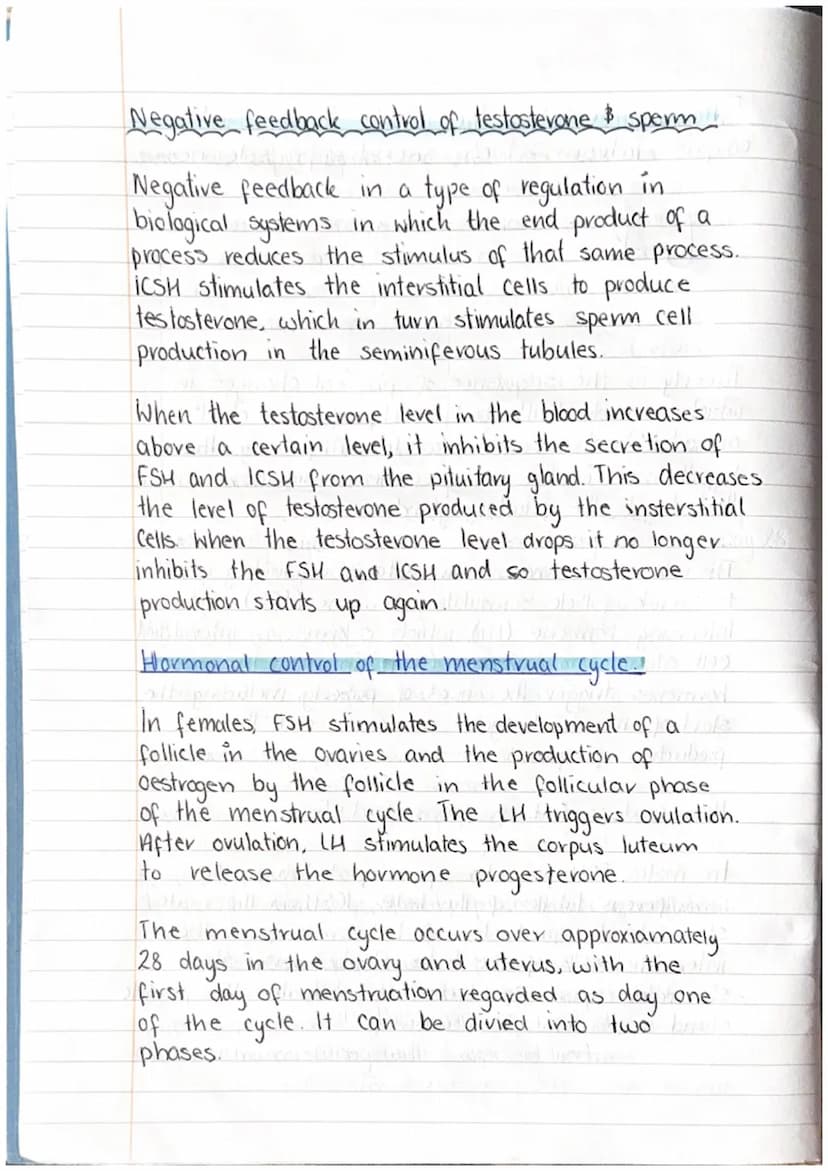 Negative feedback control of testosterone & sperm
Negative feedback in a type of regulation in
biological systems in which the end product of a
process reduces the stimulus of that same process.
ICSH stimulates the interstitial cells to produce
testosterone, which in turn stimulates sperm cell
production in the seminiferous tubules.
When the testosterone level in the blood increases
above a certain level, it inhibits the secretion of
FSH and ICSH from the pituitary gland. This decreases
the level of testosterone produced by the insterstitial
cells. When the testosterone level drops it no longer
inhibits the FSH and ICSH and so testosterone
production starts up again.
Hormonal control of the menstrual cycle.
In females, FSH stimulates the development of a
follicle in the ovaries and the production of
oestrogen by the follicle in the follicular phase
of the menstrual cycle. The LH triggers ovulation.
After ovulation, LH stimulates the corpus luteum
to release the hormone progesterone.
The menstrual cycle occurs over approxiamately
28 days in the ovary and uterus, with the
first day of menstruation regarded as day one
of the cycle. It can be divied into two
phases.